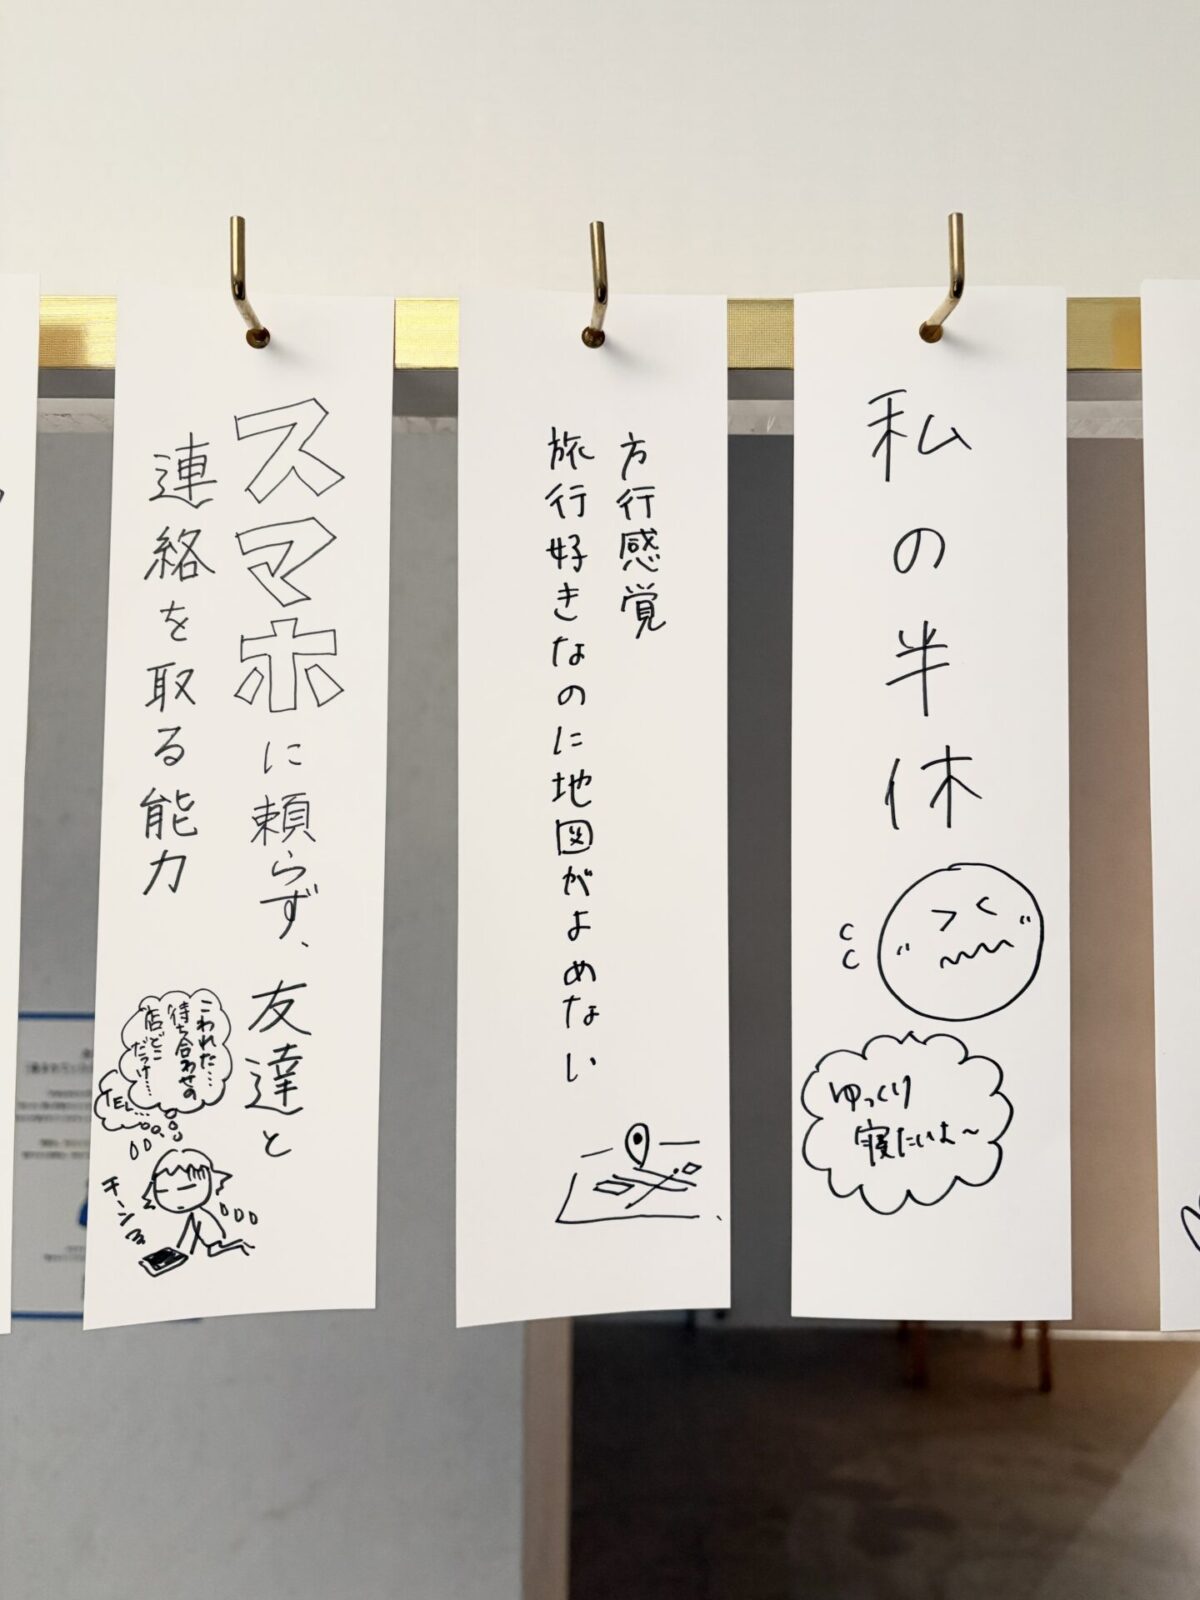 私の半休
ゆっくり
寝たいよ〜
方行感覚
旅行好きなのに地図がよめない
スマホに頼らず、友達と
連絡を取る能力
こわれた…
待ち合わせの
店どこ
だっけ…
TEL…
チーン